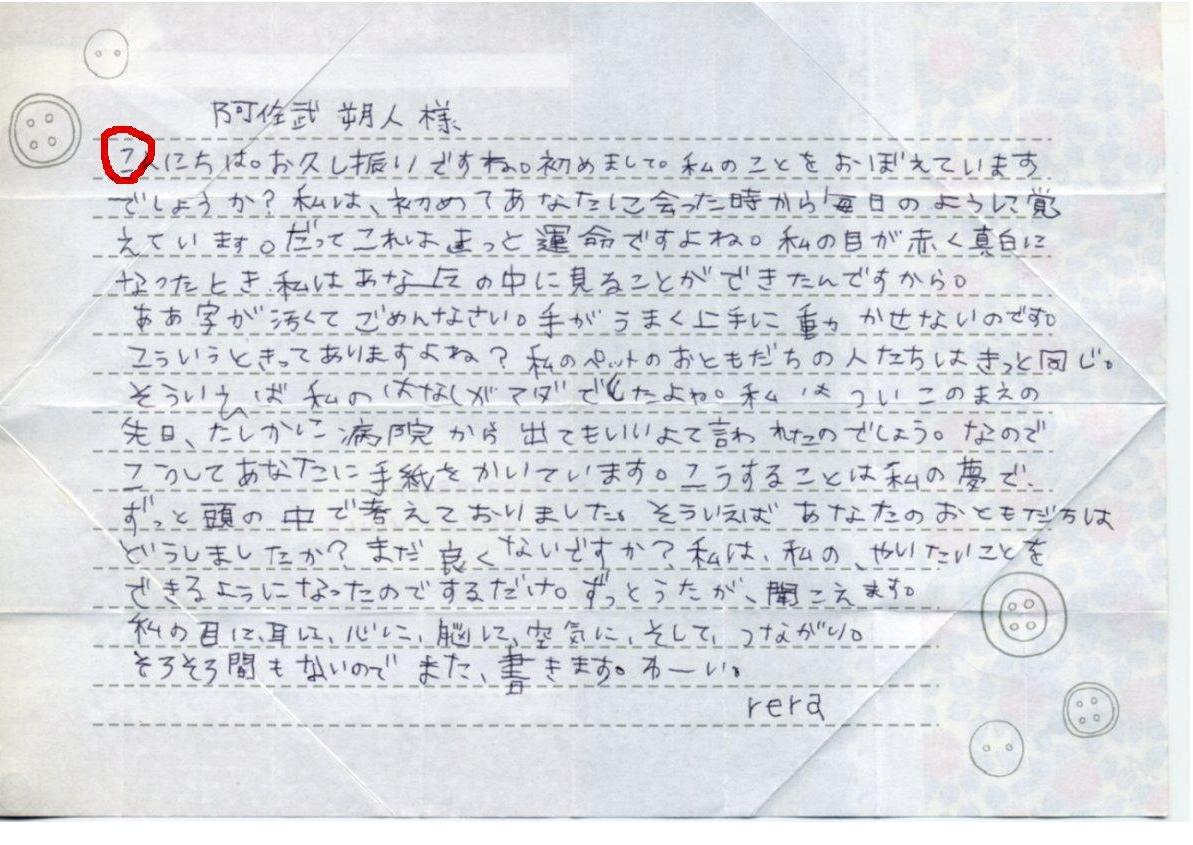 阿佐武 朔人 様
こんにちは。お久し振りですね。初めまして。私のことをおぼえています
でしょうか?私は、初めてあなたに会った時から毎日のように覚
えています。だってこれはきっと運命ですよね。私の目が赤く真白に
なったとき、私はあなたの中に見ることができたんですから。
ああ字が汚くてごめんなさい。手がうまく上手に重力かせないのです。
こういうときってありますよね?私のペットのおともだちの人たちはきっと同じ。
そういえば私のはなしがマダでしたよね。私はついこのまえの
先日、たしかに病院から出てもいいよて言われたのでしょう。なので
こうしてあなたに手紙をかいています。こうすることは私の夢で、
ずっと頭の中で考えておりました。そういえばあなたのおともだちは
どうしましたか?まだ良くないですか?私は、私の、やいたいことを
できるようになったのでするだけ。ずっとうたが、聞こえます。
私の目に、耳に、心に、脳に、空気に、そして、つながり。
そろそろ間もないのでまた、書きます。わーい。
rera